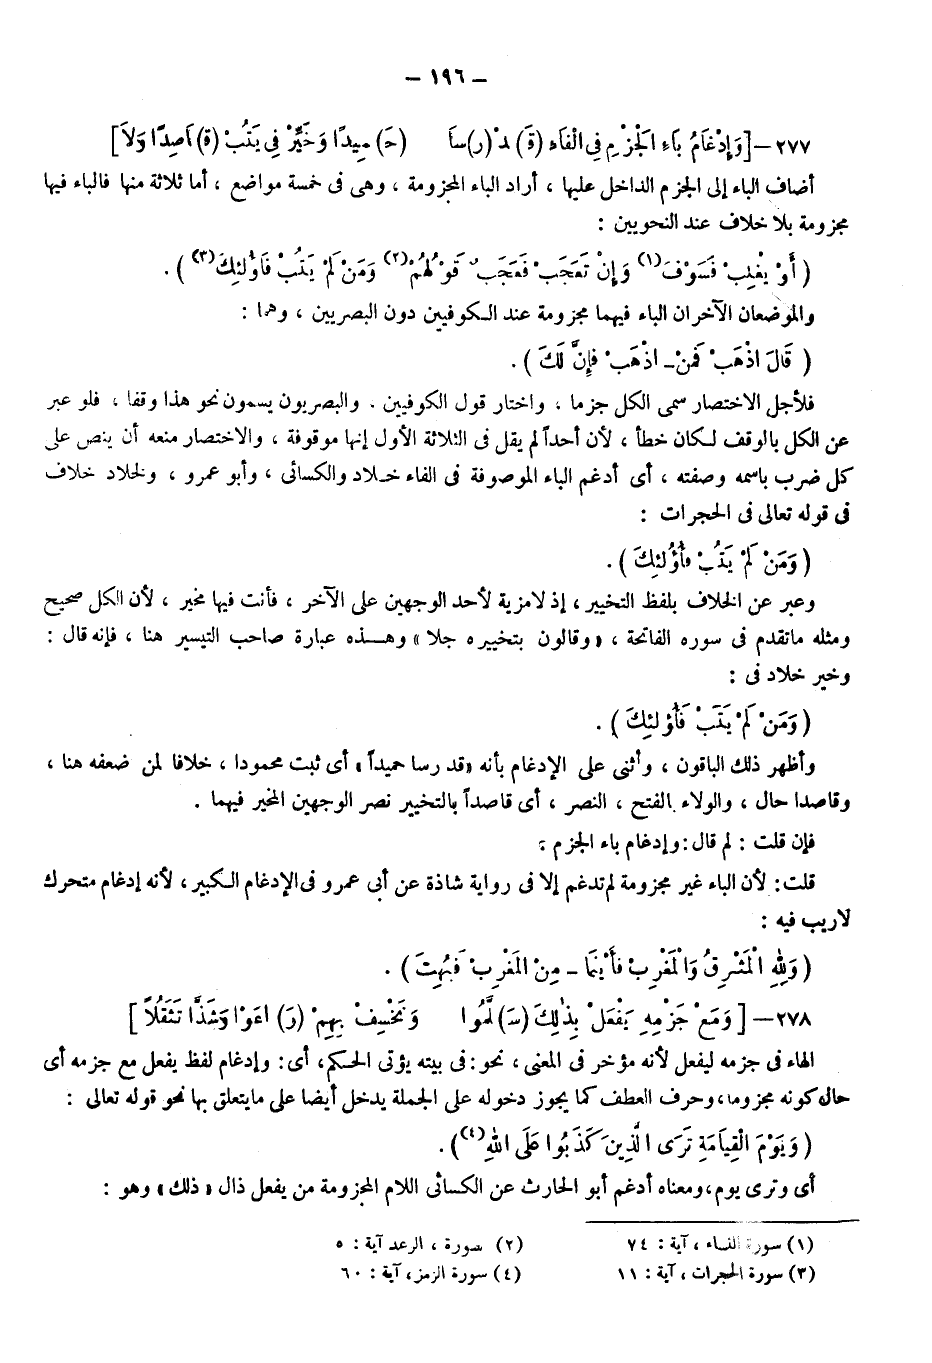 – ١٩٦ –
٢٧٧ – [وَإِدْغَامُ بَاءِ الْجَزْمِ فِى الْفَاءِ (قَ)دْ (رَ)سَا (حَ)مِيدًا وَخَيِّرْ فِى يَتُبْ (قَ)اصِدًا وَلاَ]
أضاف الباء إلى الجزم الداخل عليها ، أراد الباء المجزومة ، وهى فى خمسة مواضع ، أما ثلاثة منها فالباء فيها
مجزومة بلا خلاف عند النحويين :
( أَوْ يَغْلِبْ فَسَوْفَ(١) وَإِنْ تَعْجَبْ فَعَجَبٌ قَوْلُهُمْ(٢) وَمَنْ لَمْ يَتُبْ فَأُولَئِكَ(٣) ) .
والموضعان الآخران الباء فيهما مجزومة عند الكوفيين دون البصريين ، وهما :
( قَالَ اذْهَبْ فَمَنْ – اذْهَبْ فَإِنَّ لَكَ ) .
فلأجل الاختصار سمى الكل جزما ، واختار قول الكوفيين . والبصريون يسمون نحو هذا وقفا ، فلو عبر
عن الكل بالوقف لكان خطأ ، لأن أحداً لم يقل فى الثلاثة الأول إنها موقوفة ، والاختصار منعه أن ينص على
كل ضرب باسمه وصفته ، أى أدغم الباء الموصوفة فى الفاء خلاد والكسائى ، وأبو عمرو ، ولخلاد خلاف
فى قوله تعالى فى الحجرات :
( وَمَنْ لَمْ يَتُبْ فَأُولَئِكَ ) .
وعبر عن الخلاف بلفظ التخيير ، إذ لا مزية لأحد الوجهين على الآخر ، فأنت فيها مخير ، لأن الكل صحيح
ومثله ماتقدم فى سوره الفاتحة ، «وقالون بتخييره جلا» وهذه عبارة صاحب التيسير هنا ، فإنه قال :
وخير خلاد فى :
( وَمَنْ لَمْ يَتُبْ فَأُولَئِكَ ) .
وأظهر ذلك الباقون ، وأثنى على الإدغام بأنه «قد رسا حميداً» أى ثبت محمودا ، خلافا لمن ضعفه هنا ،
وقاصدا حال ، والولاء بالفتح ، النصر ، أى قاصداً بالتخيير نصر الوجهين المخير فيهما .
فإن قلت : لم قال : وإدغام باء الجزم ؟
قلت : لأن الباء غير مجزومة لم تدغم إلا فى رواية شاذة عن أبى عمرو فى الإدغام الكبير ، لأنه إدغام متحرك
لاريب فيه :
( وَلِلهِ الْمَشْرِقُ وَالْمَغْرِبُ فَأَيْنَمَا – مِنَ الْمَغْرِبِ فَبُهِتَ ) .
٢٧٨ – [ وَمَعْ جَزْمِهِ يَفْعَلْ بِذٰلِكَ (سَ)لَّمُوا وَنَخْسِفْ بِهِمْ (رَ)اعَوْا وَشَذَّا تَثَقُّلاً ]
الهاء فى جزمه ليفعل لأنه مؤخر فى المعنى ، نحو : فى بيته يؤتى الحكم ، أى : وإدغام لفظ يفعل مع جزمه أى
حال كونه مجزوما ، وحرف العطف كما يجوز دخوله على الجملة يدخل أيضا على مايتعلق بها نحو قوله تعالى :
( وَيَوْمَ الْقِيَامَةِ تَرَى الَّذِينَ كَذَبُوا عَلَى اللهِ(٤)) .
أى وترى يوم ، ومعناه أدغم أبو الحارث عن الكسائى اللام المجزومة من يفعل ذال «ذلك» وهو :
(١) سورة النساء ، آية : ٧٤ (٢) سورة ، الرعد آية : ٥
(٣) سورة الحجرات ، آية : ١١ (٤) سورة الزمر ، آية : ٦٠